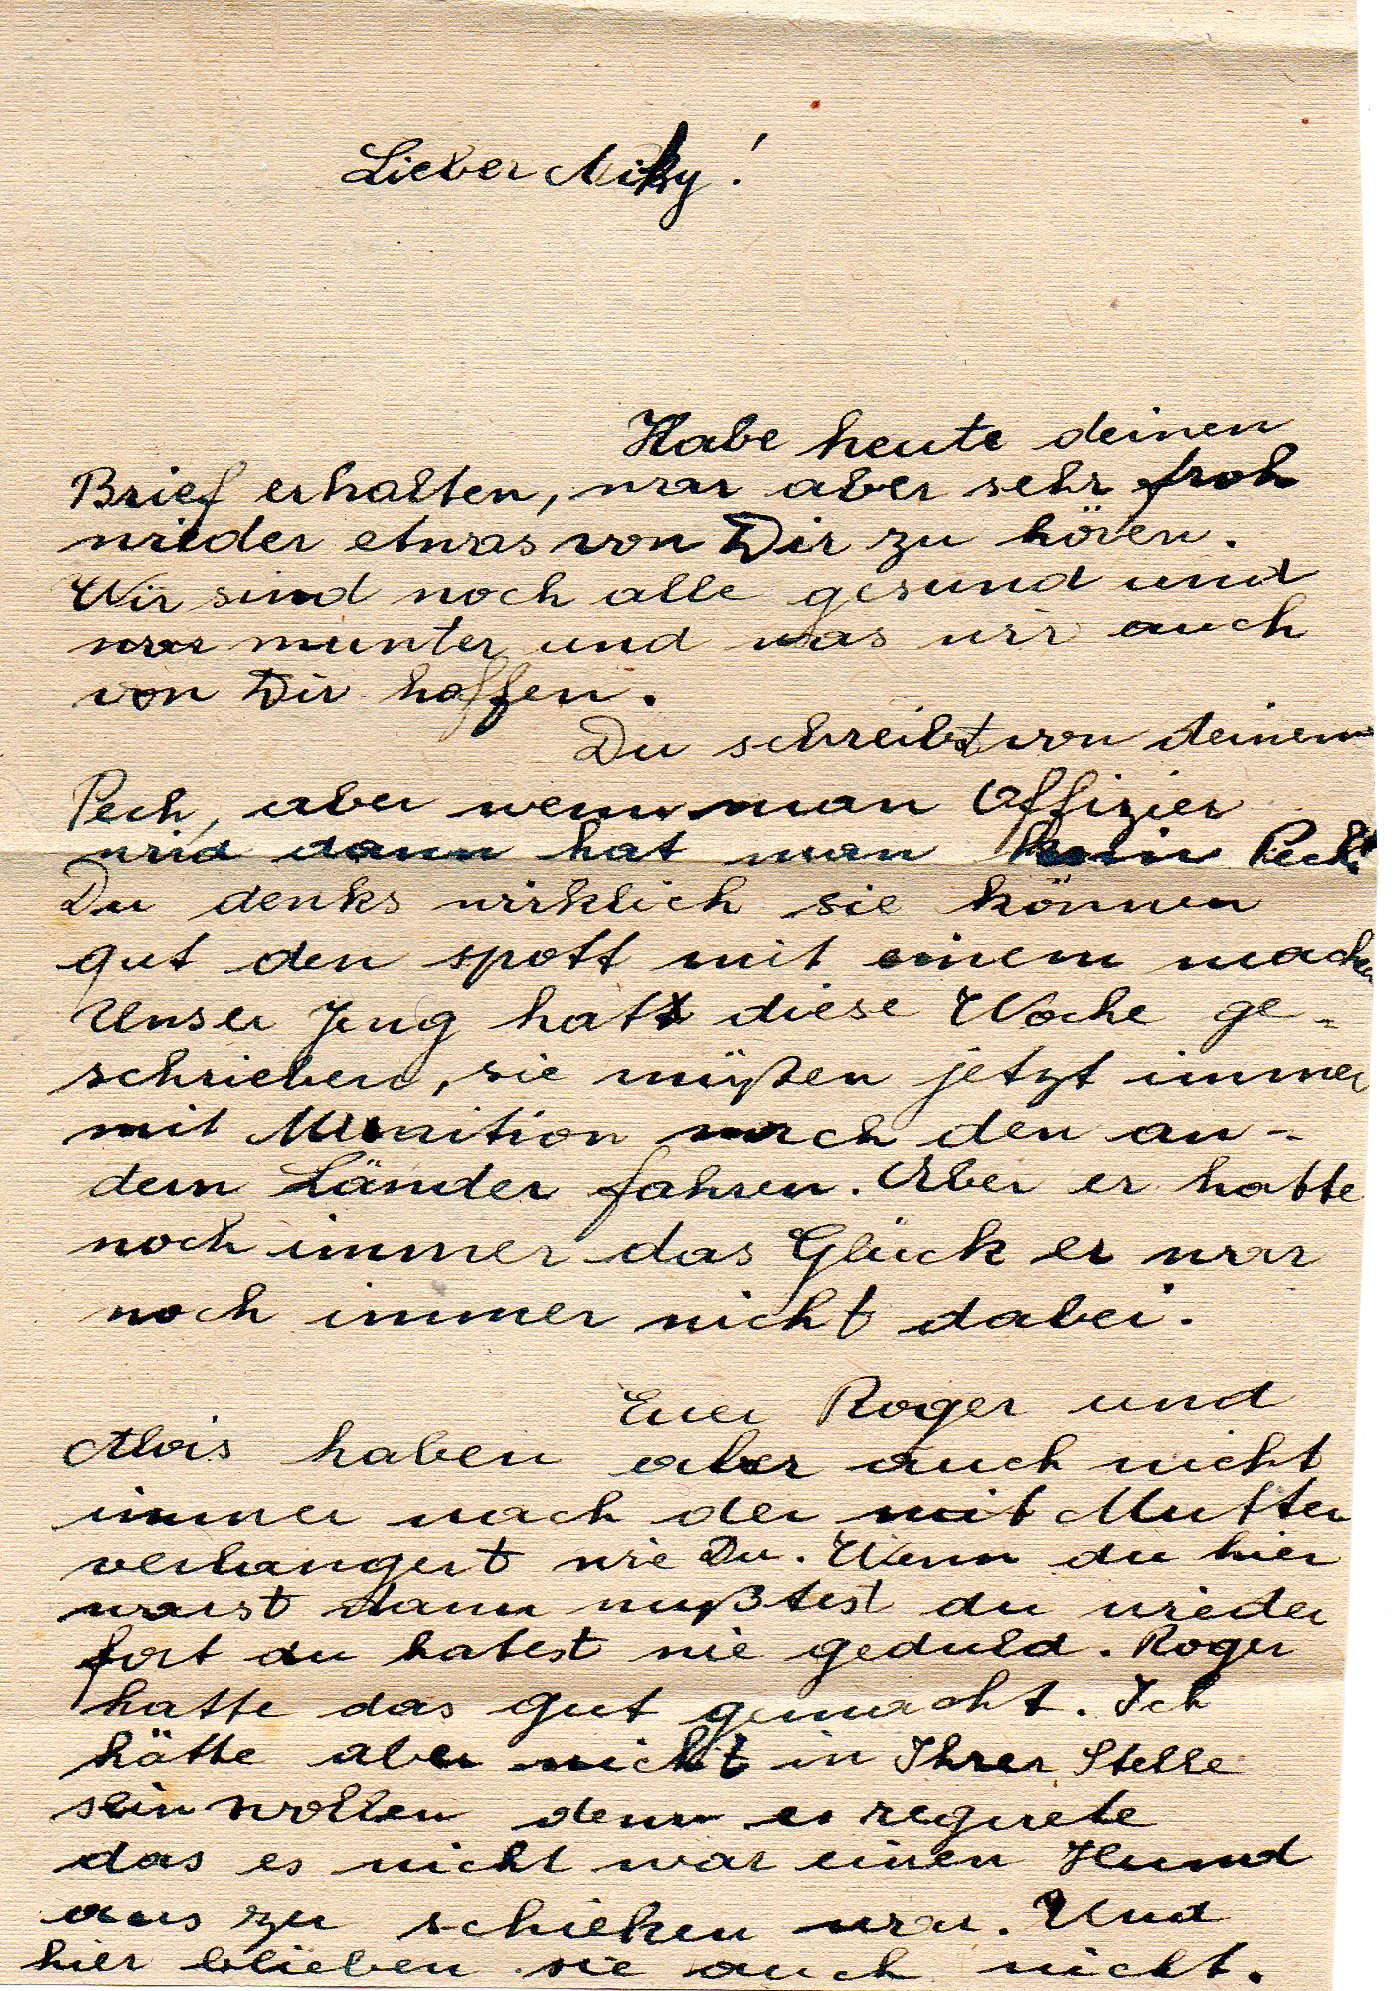 Lieber Niky!
Habe heute deinen
Brief erhalten, war aber sehr froh
wieder etwas von Dir zu hören.
Wir sind noch alle gesund und
munter und was wir auch
von Dir hoffen.
Du schreibst von deinem
Pech, aber wenn man Offizier
wird dann hat man kein Pech.
Du denks wirklich sie können
gut den spott mit einem machen
Unser Jeng hatt diese Woche ge-
schrieben, sie müßen jetzt immer
mit Munition nach den an-
dern Länder fahren. Aber er hatte
noch immer das Glück er war
noch immer nicht dabei.
Euer Roger und
Alois haben aber auch nicht
immer nach der mit Mutter
verlangert wie Du. Wenn du hier
warst dann mußtest du wieder
fort du hatest nie geduld. Roger
hatte das gut gemacht. Ich
hätte aber nicht in Ihrer Stelle
sein wollen denn es regnete
das es nicht war einen Hund
aus zu schicken war. Und
hier blieben sie auch nicht.